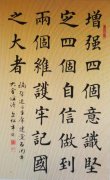 增强四個意識堅
定四個自信做到
兩個維護牢記國
之大者